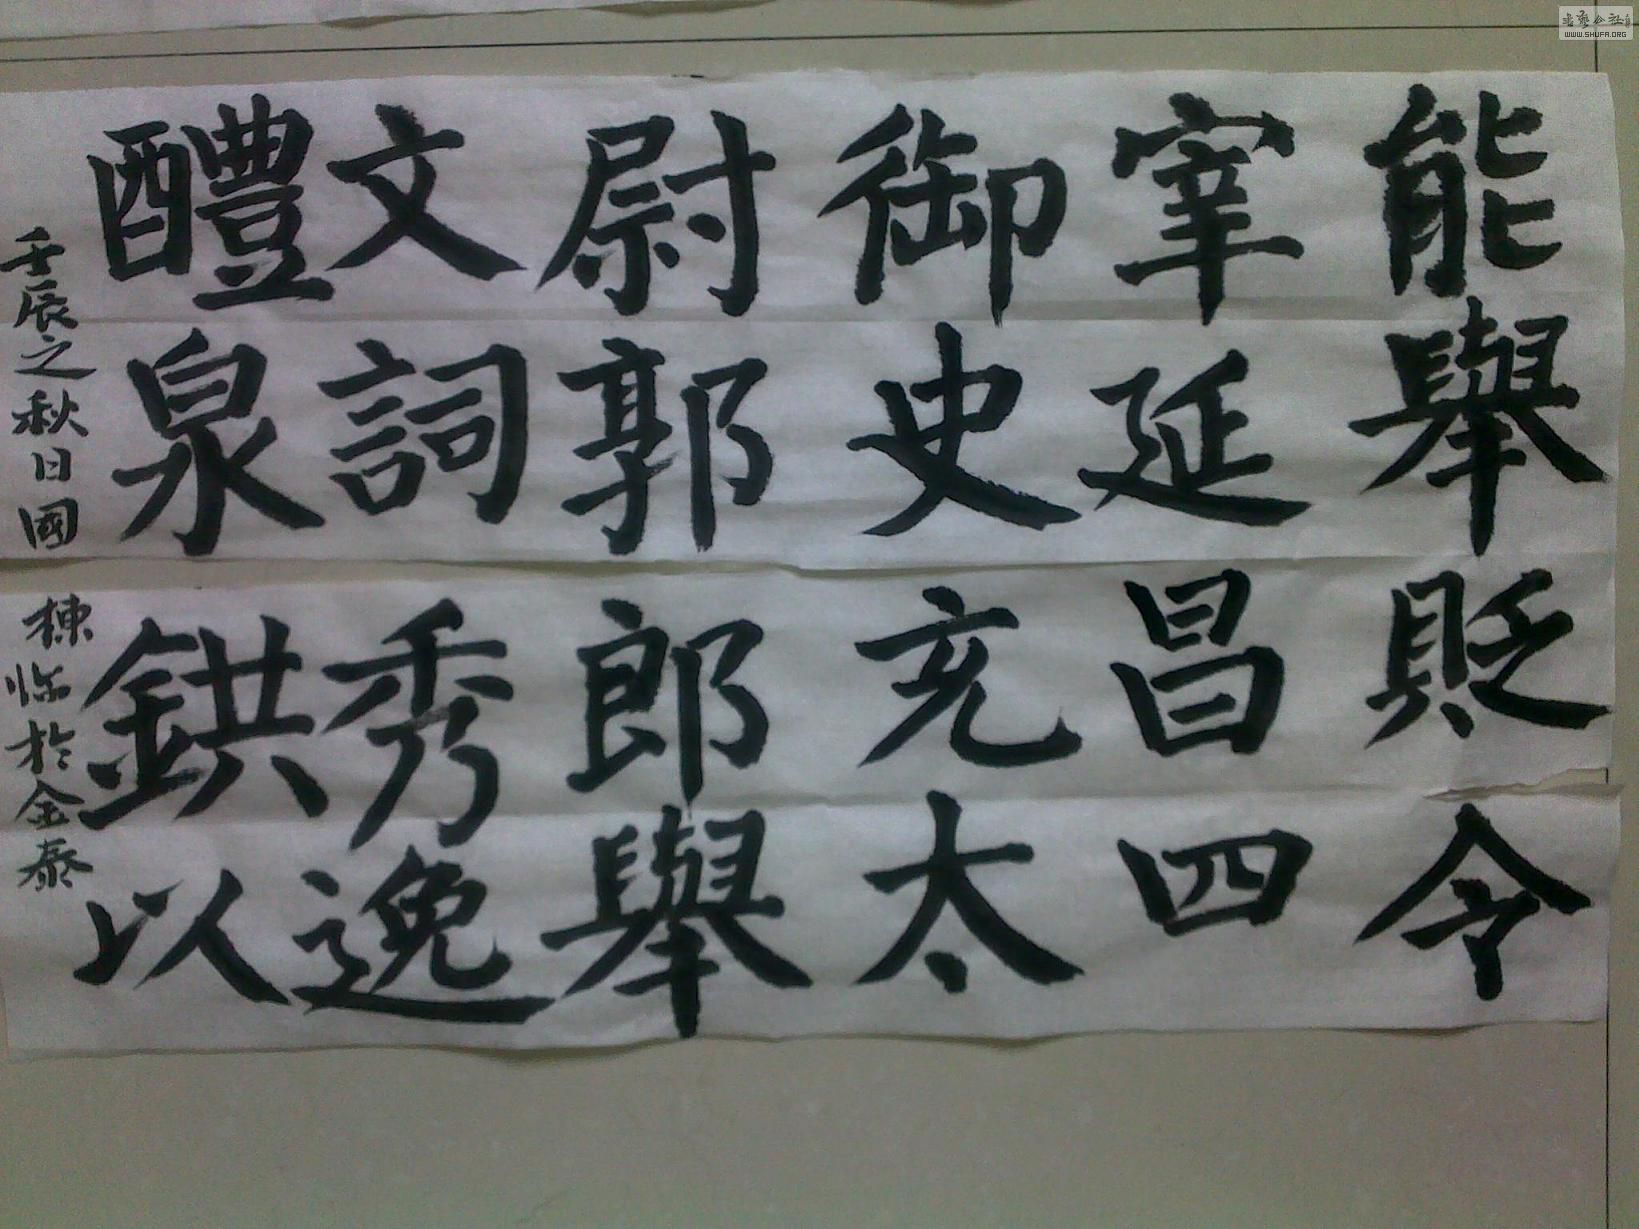 能舉貶令
宰延昌四
御史充太
尉郭郎舉
文詞秀逸
醴泉鉷以
壬辰之秋日國棟臨於金泰
書藝公社
WWW.SHUFA.ORG